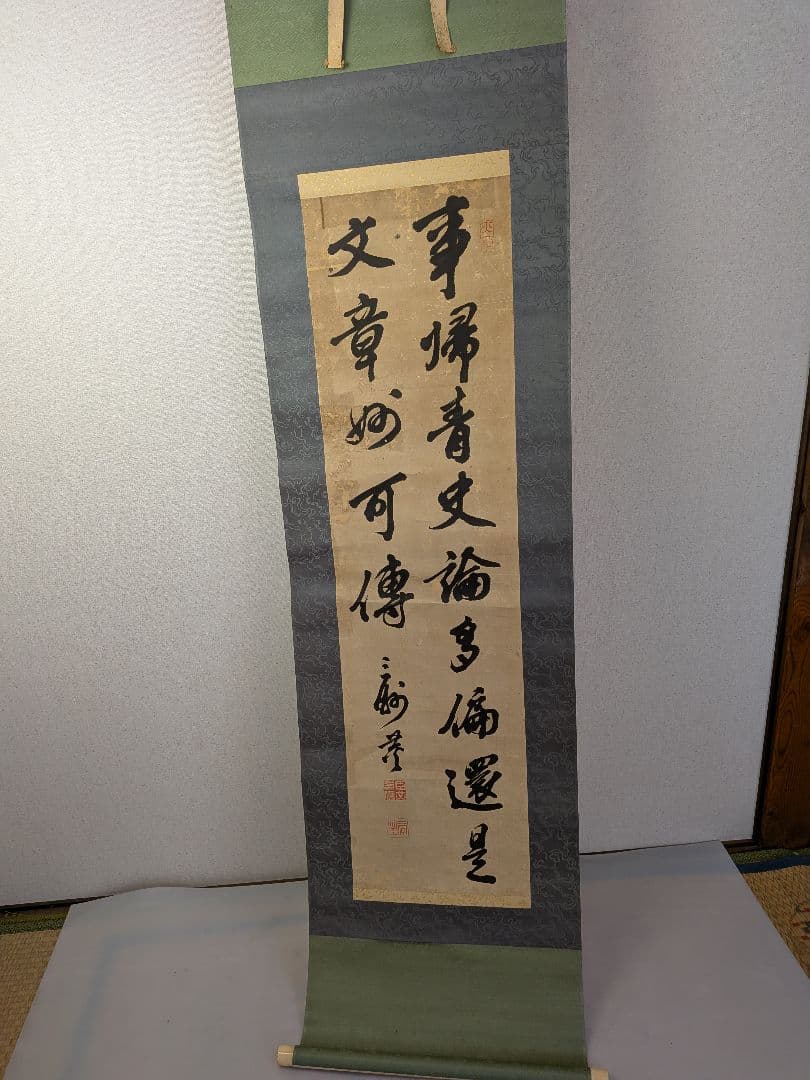 事歸青史論多偏還是
文章妙可傳